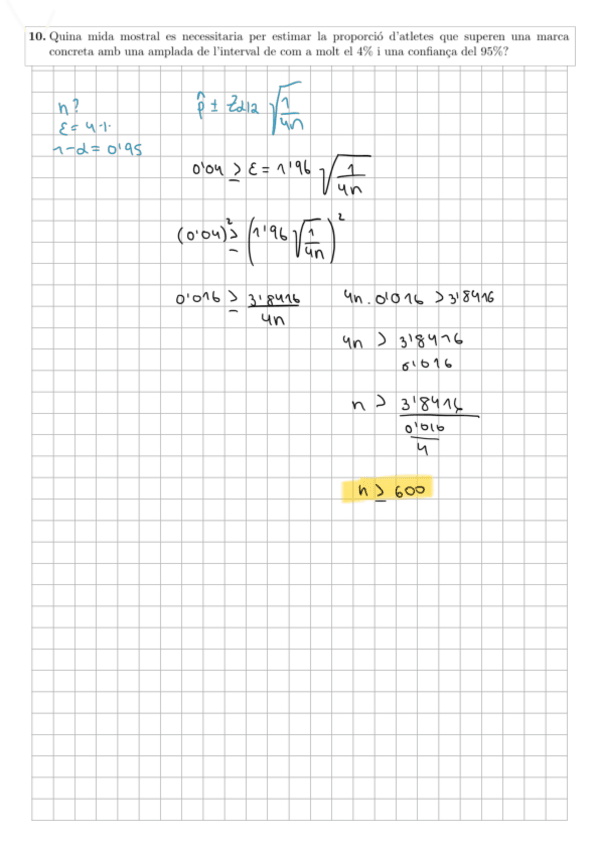 10. Quina mida mostral es necessitaria per estimar la proporció d'atletes que superen una marca
concreta amb una amplada de l'interval de com a molt el 4% i una confiança del 95%?
n?
ε = 4%
1-α = 0'95
p̂ ± Zα/2 √(1/4n)
0'04 ≥ ε = 1'96 √(1/4n)
(0'04)² ≥ (1'96 √(1/4n))²
0'016 ≥ 3'8416/4n
4n . 0'016 > 3'8416
4n > 3'8416/0'016
n > 3'8416/0'016/4
n ≥ 600